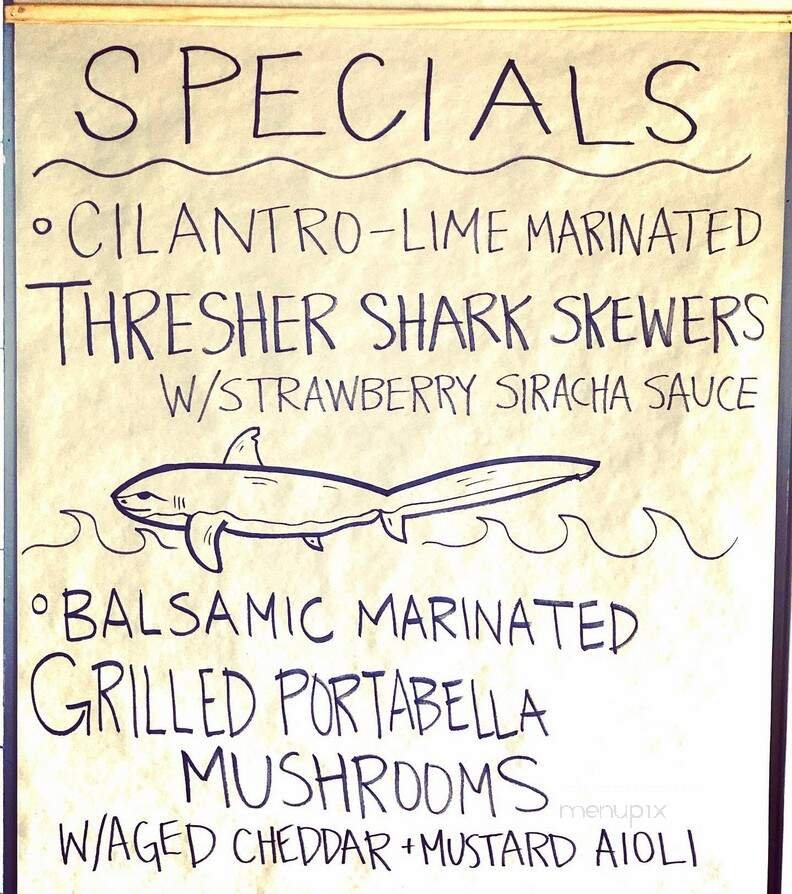 SPECIALS
° CILANTRO-LIME MARINATED
THRESHER SHARK SKEWERS
W/STRAWBERRY SIRACHA SAUCE
° BALSAMIC MARINATED
GRILLED PORTABELLA
MUSHROOMS
menupix
W/AGED CHEDDAR + MUSTARD AIOLI